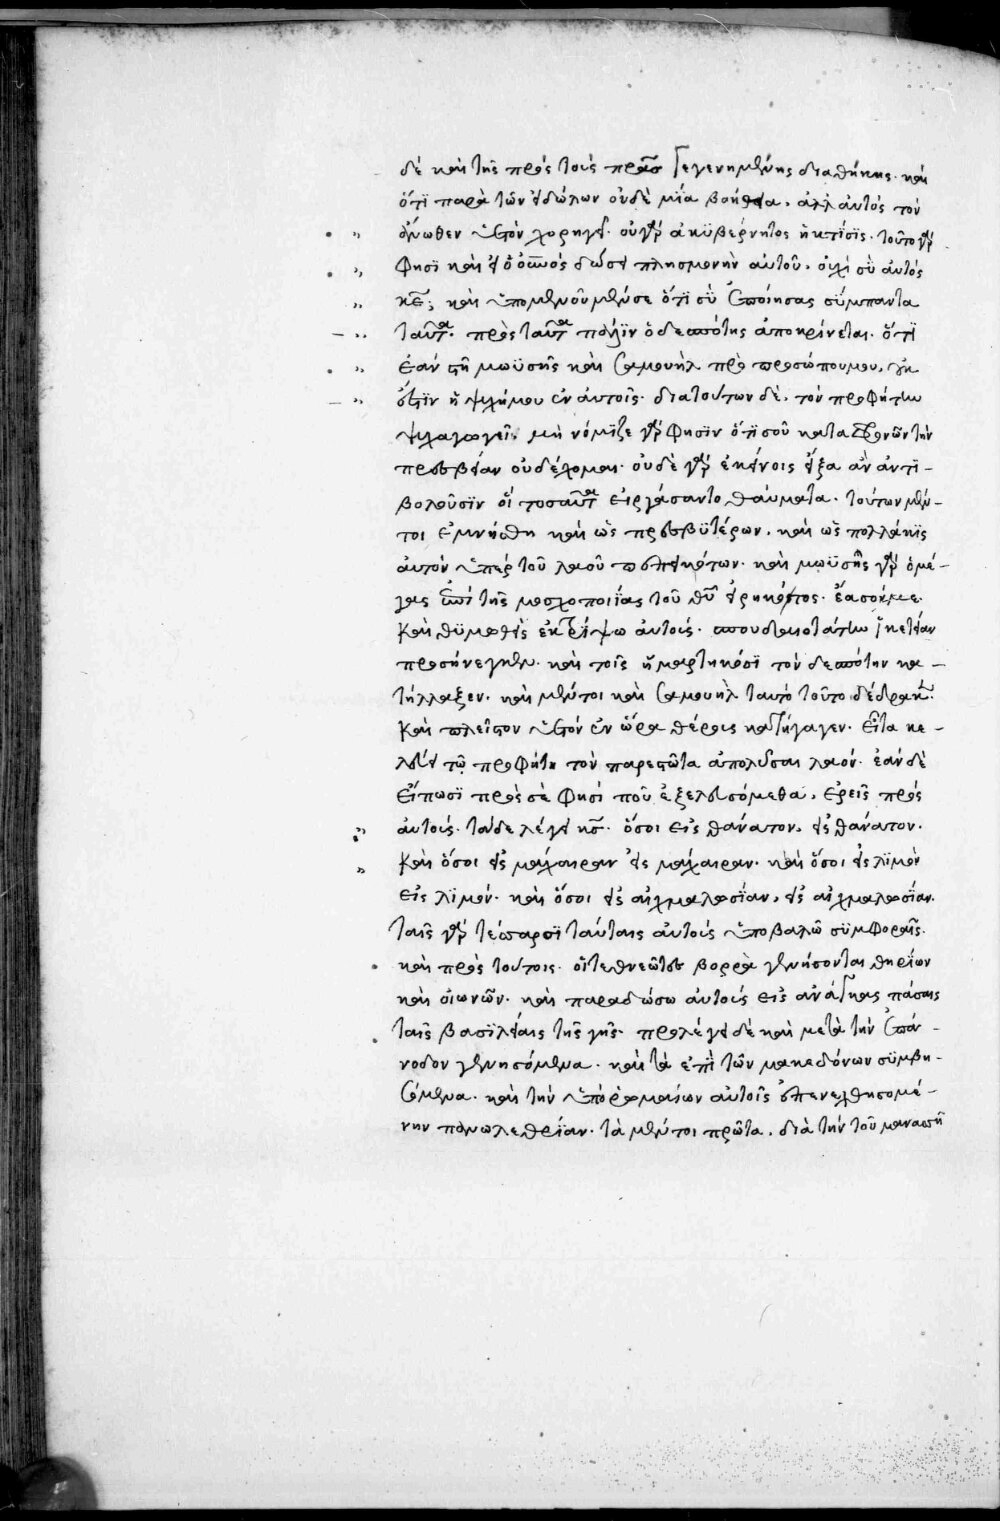 δὲ καὶ τῆς πρὸς τοὺς πρας γεγενημένης διαθήκης· καὶ
ὅτι παρὰ τῶν εἰδώλων οὐδὲ μία βοήθεια, ἀλλ' αὐτὸς τὸν
ἄνωθεν ὑετὸν χορηγεῖ· οὐ γὰρ ἀκυβέρνητος ἡ κτίσις· τοῦτο γάρ
φησι καὶ εἰ ὁ οὐνὸς δώσει πλησμονὴν αὐτοῦ· οὐχὶ σὺ αὐτὸς
κε; καὶ ὑπομενοῦμέν σε ὅτι σὺ ἐποίησας σύμπαντα
ταῦτα· πρὸς ταῦτα πάλιν ὁ δεσπότης ἀποκρίνεται· ὅτι
ἐὰν στῇ μωϋσῆς καὶ σαμουὴλ πρὸ προσώπου μου, οὐκ
ἔστιν ἡ ψυχή μου ἐν αὐτοῖς· διὰ τούτων δὲ, τὸν προφήτην
ψυχαγωγεῖ· μὴ νόμιζε γάρ φησιν ὅτι σοῦ καταφρονῶν τὴν
πρεσβείαν οὐ δέχομαι· οὐδὲ γὰρ ἐκείνοις εἶξα ἂν ἀντι-
βολοῦσιν οἳ τοσαῦτα εἰργάσαντο θαύματα· τούτων μέν-
τοι ἐμνήσθη καὶ ὡς πρεσβυτέρων, καὶ ὡς πολλάκις
αὐτὸν ὑπὲρ τοῦ λαοῦ πεπεικότων· καὶ μωϋσῆς γὰρ ὁ μέ-
γας ἐπὶ τῆς μοσχοποιΐας τοῦ θυ εἰρηκότος· ἔασόν με
καὶ θυμωθεὶς ἐκτρίψω αὐτούς· σπουδαιοτάτην ἱκετείαν
προσήνεγκεν· καὶ τοῖς ἡμαρτηκόσι τὸν δεσπότην κα-
τήλλαξεν· καὶ μέντοι καὶ σαμουὴλ ταυτὸ τοῦτο δέδρακεν·
καὶ πλεῖστον ὑετὸν ἐν ὥρα θέρους κατήγαγεν· εἶτα κε-
λεύει τῶ προφήτη τὸν παρεστῶτα ἀπολῦσαι λαόν· ἐὰν δὲ
εἴπωσι πρὸς σὲ φησί ποῦ ἐξελευσόμεθα, ἐρεῖς πρὸς
αὐτούς· τάδε λέγει κς· ὅσοι εἰς θάνατον, εἰς θάνατον·
καὶ ὅσοι εἰς μάχαιραν εἰς μάχαιραν· καὶ ὅσοι εἰς λιμὸν
εἰς λιμόν· καὶ ὅσοι εἰς αἰχμαλωσίαν, εἰς αἰχμαλωσίαν·
ταῖς γὰρ τέσσαρσι ταύταις αὐτοὺς ὑποβαλῶ συμφοραῖς·
καὶ πρὸς τούτοις· οἱ τεθνεῶτες βορρὰ γενήσονται θηρίων
καὶ οἰωνῶν· καὶ παραδώσω αὐτοὺς εἰς ἀνάγκας πάσαις
ταῖς βασιλείαις τῆς γῆς· προλέγει δὲ καὶ μετὰ τὴν ἐπάν-
νοδον γενησόμενα· καὶ τὰ ἐπὶ τῶν μακεδόνων συμβη-
σόμενα· καὶ τὴν ὑπὸ ῥωμαίων αὐτοῖς ἐπενεχθησομέ-
νην πανωλεθρίαν· τὰ μέντοι πρῶτα, διὰ τὴν τοῦ μανασσῆ